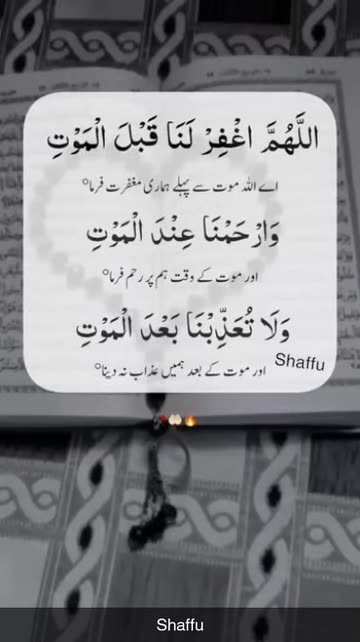 اللَّهُمَّ اغْفِرْ لَنَا قَبْلَ الْمَوْتِ
اے اللہ موت سے پہلے ہماری مغفرت فرما°
وَارْحَمْنَا عِنْدَ الْمَوْتِ
اور موت کے وقت ہم پر رحم فرما°
وَلَا تُعَذِّبْنَا بَعْدَ الْمَوْتِ
Shaffu
اور موت کے بعد ہمیں عذاب نہ دینا°
Shaffu